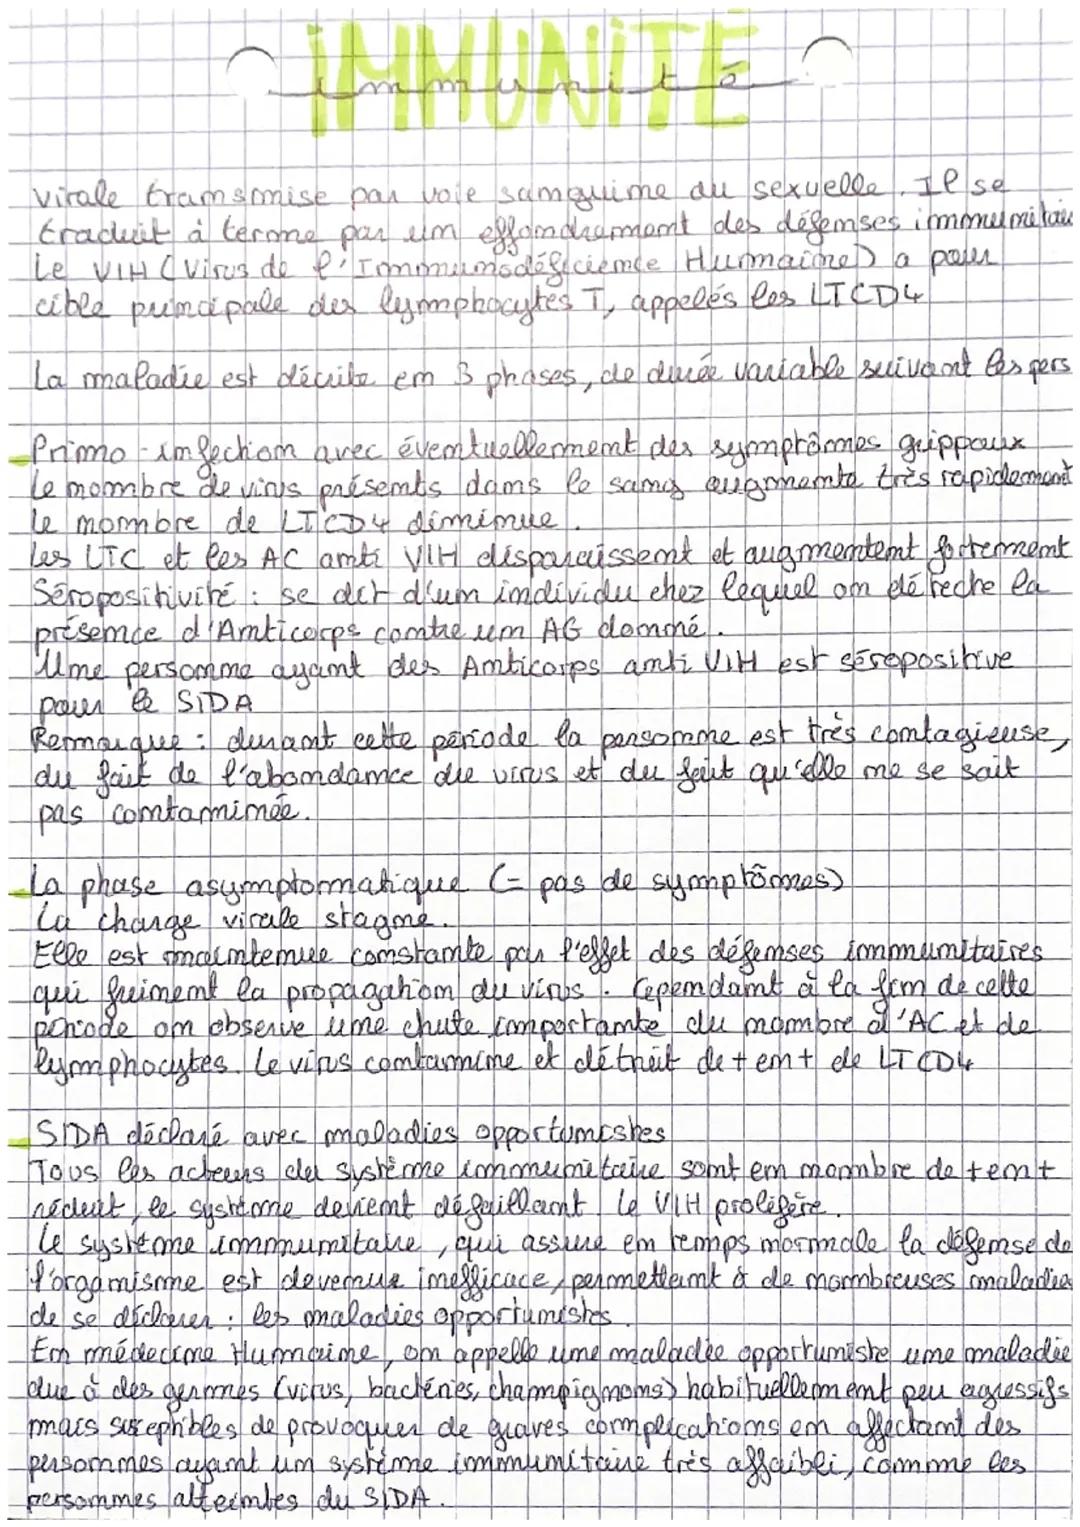 IMMUNITE
immunité
virale transmise par voie sanguine ou sexuelle. Il se
traduit à terme par un effondrement des défenses immunitair
Le VIH (Virus de l'Immunodéficience Humaine) a pour
cible principale des lymphocytes T, appelés les LTCD4
La maladie est décrite en 3 phases, de durée variable suivant les pers
Primo-infection avec éventuellement des symptômes grippaux
Le nombre de virus présents dans le sang augmente très rapidement
Le nombre de LTCD4 diminue.
Les LTC et les AC anti VIH disparaissent et augmentent fortement
Séropositivité : se dit d'un individu chez lequel on détecte la
présence d'Anticorps contre un AG donné.
Une personne ayant des Anticorps anti VIH est séropositive
pour le SIDA
Remarque : durant cette période la personne est très contagieuse,
du fait de l'abondance du virus et du fait qu'elle ne se sait
pas contaminée.
La phase asymptomatique (= pas de symptômes)
La charge virale stagne.
Elle est maintenue constante par l'effet des défenses immunitaires
qui freinent la propagation du virus. Cependant à la fin de cette
période on observe une chute importante du nombre d'AC et de
lymphocytes. Le virus contamine et détruit de + en + de LTCD4
SIDA déclaré avec maladies opportunistes
Tous les acteurs du système immunitaire sont en nombre de + en +
réduit, le système devient défaillant le VIH prolifère.
Le système immunitaire, qui assure en temps normale la défense de
l'organisme est devenue inefficace, permettant à de nombreuses maladies
de se déclarer : les maladies opportunistes.
En médecine Humaine, on appelle une maladie opportuniste une maladie
due à des germes (virus, bactéries, champignons) habituellement peu agressifs
mais suseptibles de provoquer de graves complications en affectant des
personnes ayant un système immunitaire très affaibli, comme les
personnes atteintes du SIDA.